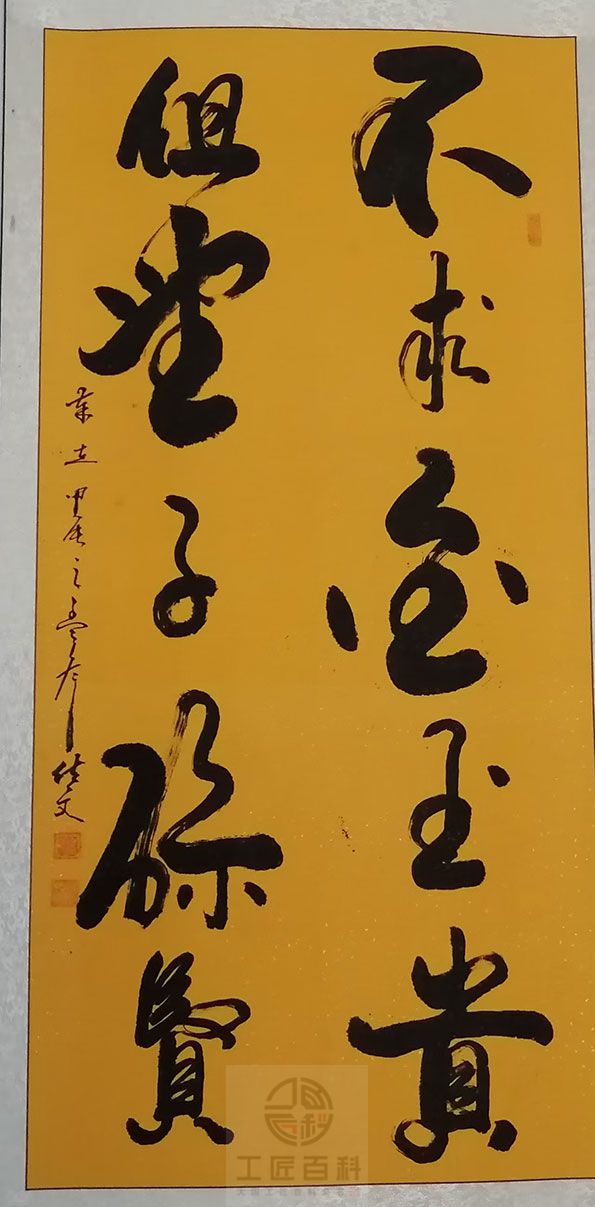 不求金玉貴
但望子孫賢
佳文
工匠百科